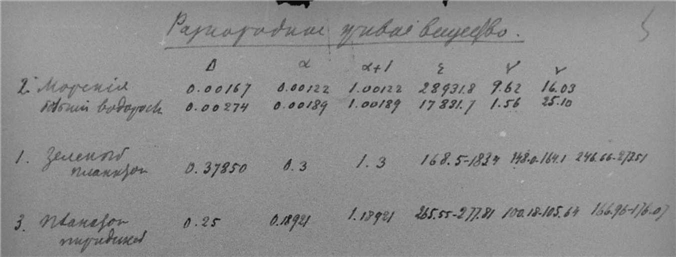 Разнородное живое вещество.
Δ α α+1 ε V V
2. Морскія 0.00167 0.00122 1.00122 28931.8 9.62 16.03
водоросли 0.00274 0.00189 1.00189 17831.7 1.56 25.10
1. Зеленый 0.37850 0.3 1.3 168.5-183.4 148.0-164.1 246.66-273.51
планктон
3. Планктон 0.25 0.18921 1.18921 265.55-277.81 100.18-105.64 166.96-176.07